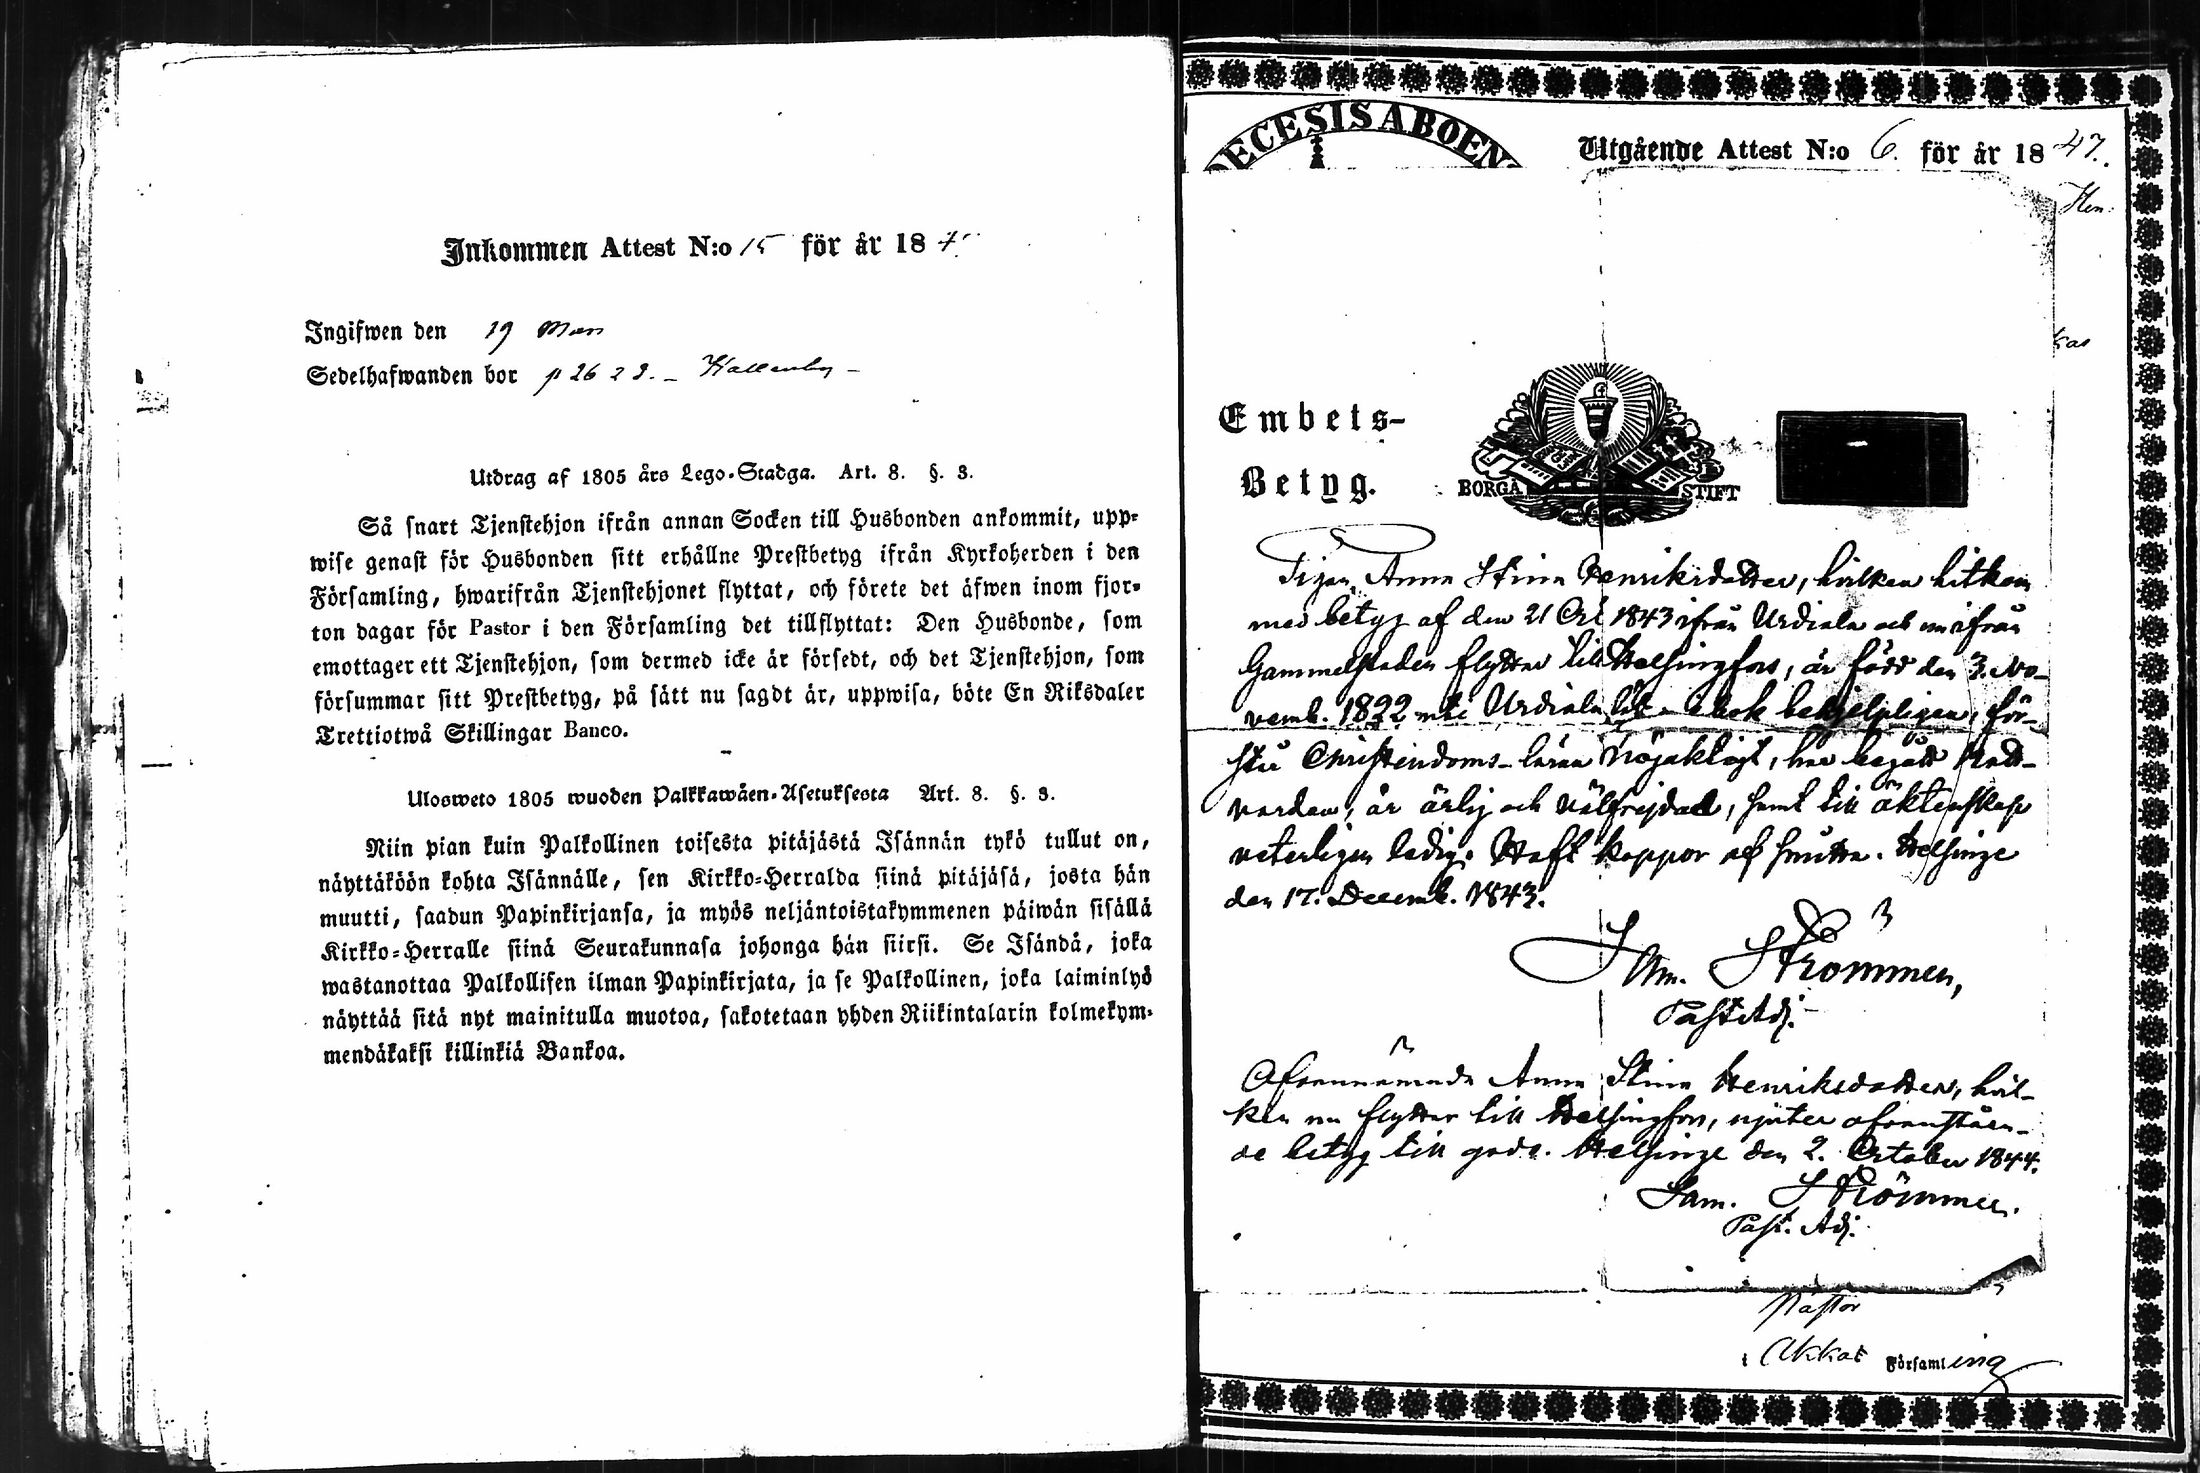 Inkommen Attest N:o 15 för år 184
Ingifwen den 19 Mars
Sedelhafwanden bor p 26
Utdrag af 1805 års Lego-Stadga. Art. 8. §. 3.
Så snart Tjenstehjon ifrån annan Socken till Husbonden ankommit, upp-
wise genast för Husbonden sitt erhållne Prestbetyg ifrån Kyrkoherden i den
Församling, hwarifrån Tjenstehjonet flyttat, och förete det äfwen inom fjor-
ton dagar för Pastor i den Församling det tillflyttat: Den Husbonde, som
emottager ett Tjenstehjon, som dermed icke är försedt, och det Tjenstehjon, som
försummar sitt Prestbetyg, på sätt nu sagdt är, uppwisa, böte En Riksdaler
Trettiotwå Skillingar Banco.
Ulosweto 1805 wuoden Palkkawäen-Asetuksesta Art. 8. §. 3.
Niin pian kuin Palkollinen toisesta pitäjästä Isännän tykö tullut on,
näyttäköön kohta Isännälle, sen Kirkko-Herralda siinä pitäjäsä, josta hän
muutti, saadun Papinkirjansa, ja myös neljäntoistakymmenen päiwän sisällä
Kirkko-Herralle siinä Seurakunnasa johonga hän siirsi. Se Isändä, joka
wastanottaa Palkollisen ilman Papinkirjata, ja se Palkollinen, joka laiminlyö
näyttää sitä nyt mainitulla muotoa, sakotetaan yhden Riikintalarin kolmekym-
mendäkaksi killinkiä Bankoa.
DECESIS ABOEN
Utgående Attest N:o 6. för år 1847.
Hen
kas
Embets-
Betyg.
BORGÅ STIFT
Pigan Anna Stina Henriksdotter, hvilken hitkom
med betyg af den 21 Oct 1843 ifrån Urdiala och nu ifrån
Gammelstaden flyttar till Helsingfors, är född den 3. No-
vemb. 1822 uti Urdiala, i bok behjelpligen, för-
står Christendoms-läran nöjaktigt, har begått Natt-
varden, är ärlig och välfrejdad, samt till äktenskap
veterligen ledig. Haft koppor af smitta. Helsinge
den 17. Decemb. 1843.
Sam. Strömmer,
Past. Adj.
Ofvannämnde Anna Stina Henriksdotter, hvil-
ken nu flyttar till Helsingfors, njuter ofvanståen-
de betyg till godo. Helsinge den 2. October 1844.
Sam. Strömmer.
Past. Adj.
Pastor
i Akkas Församling